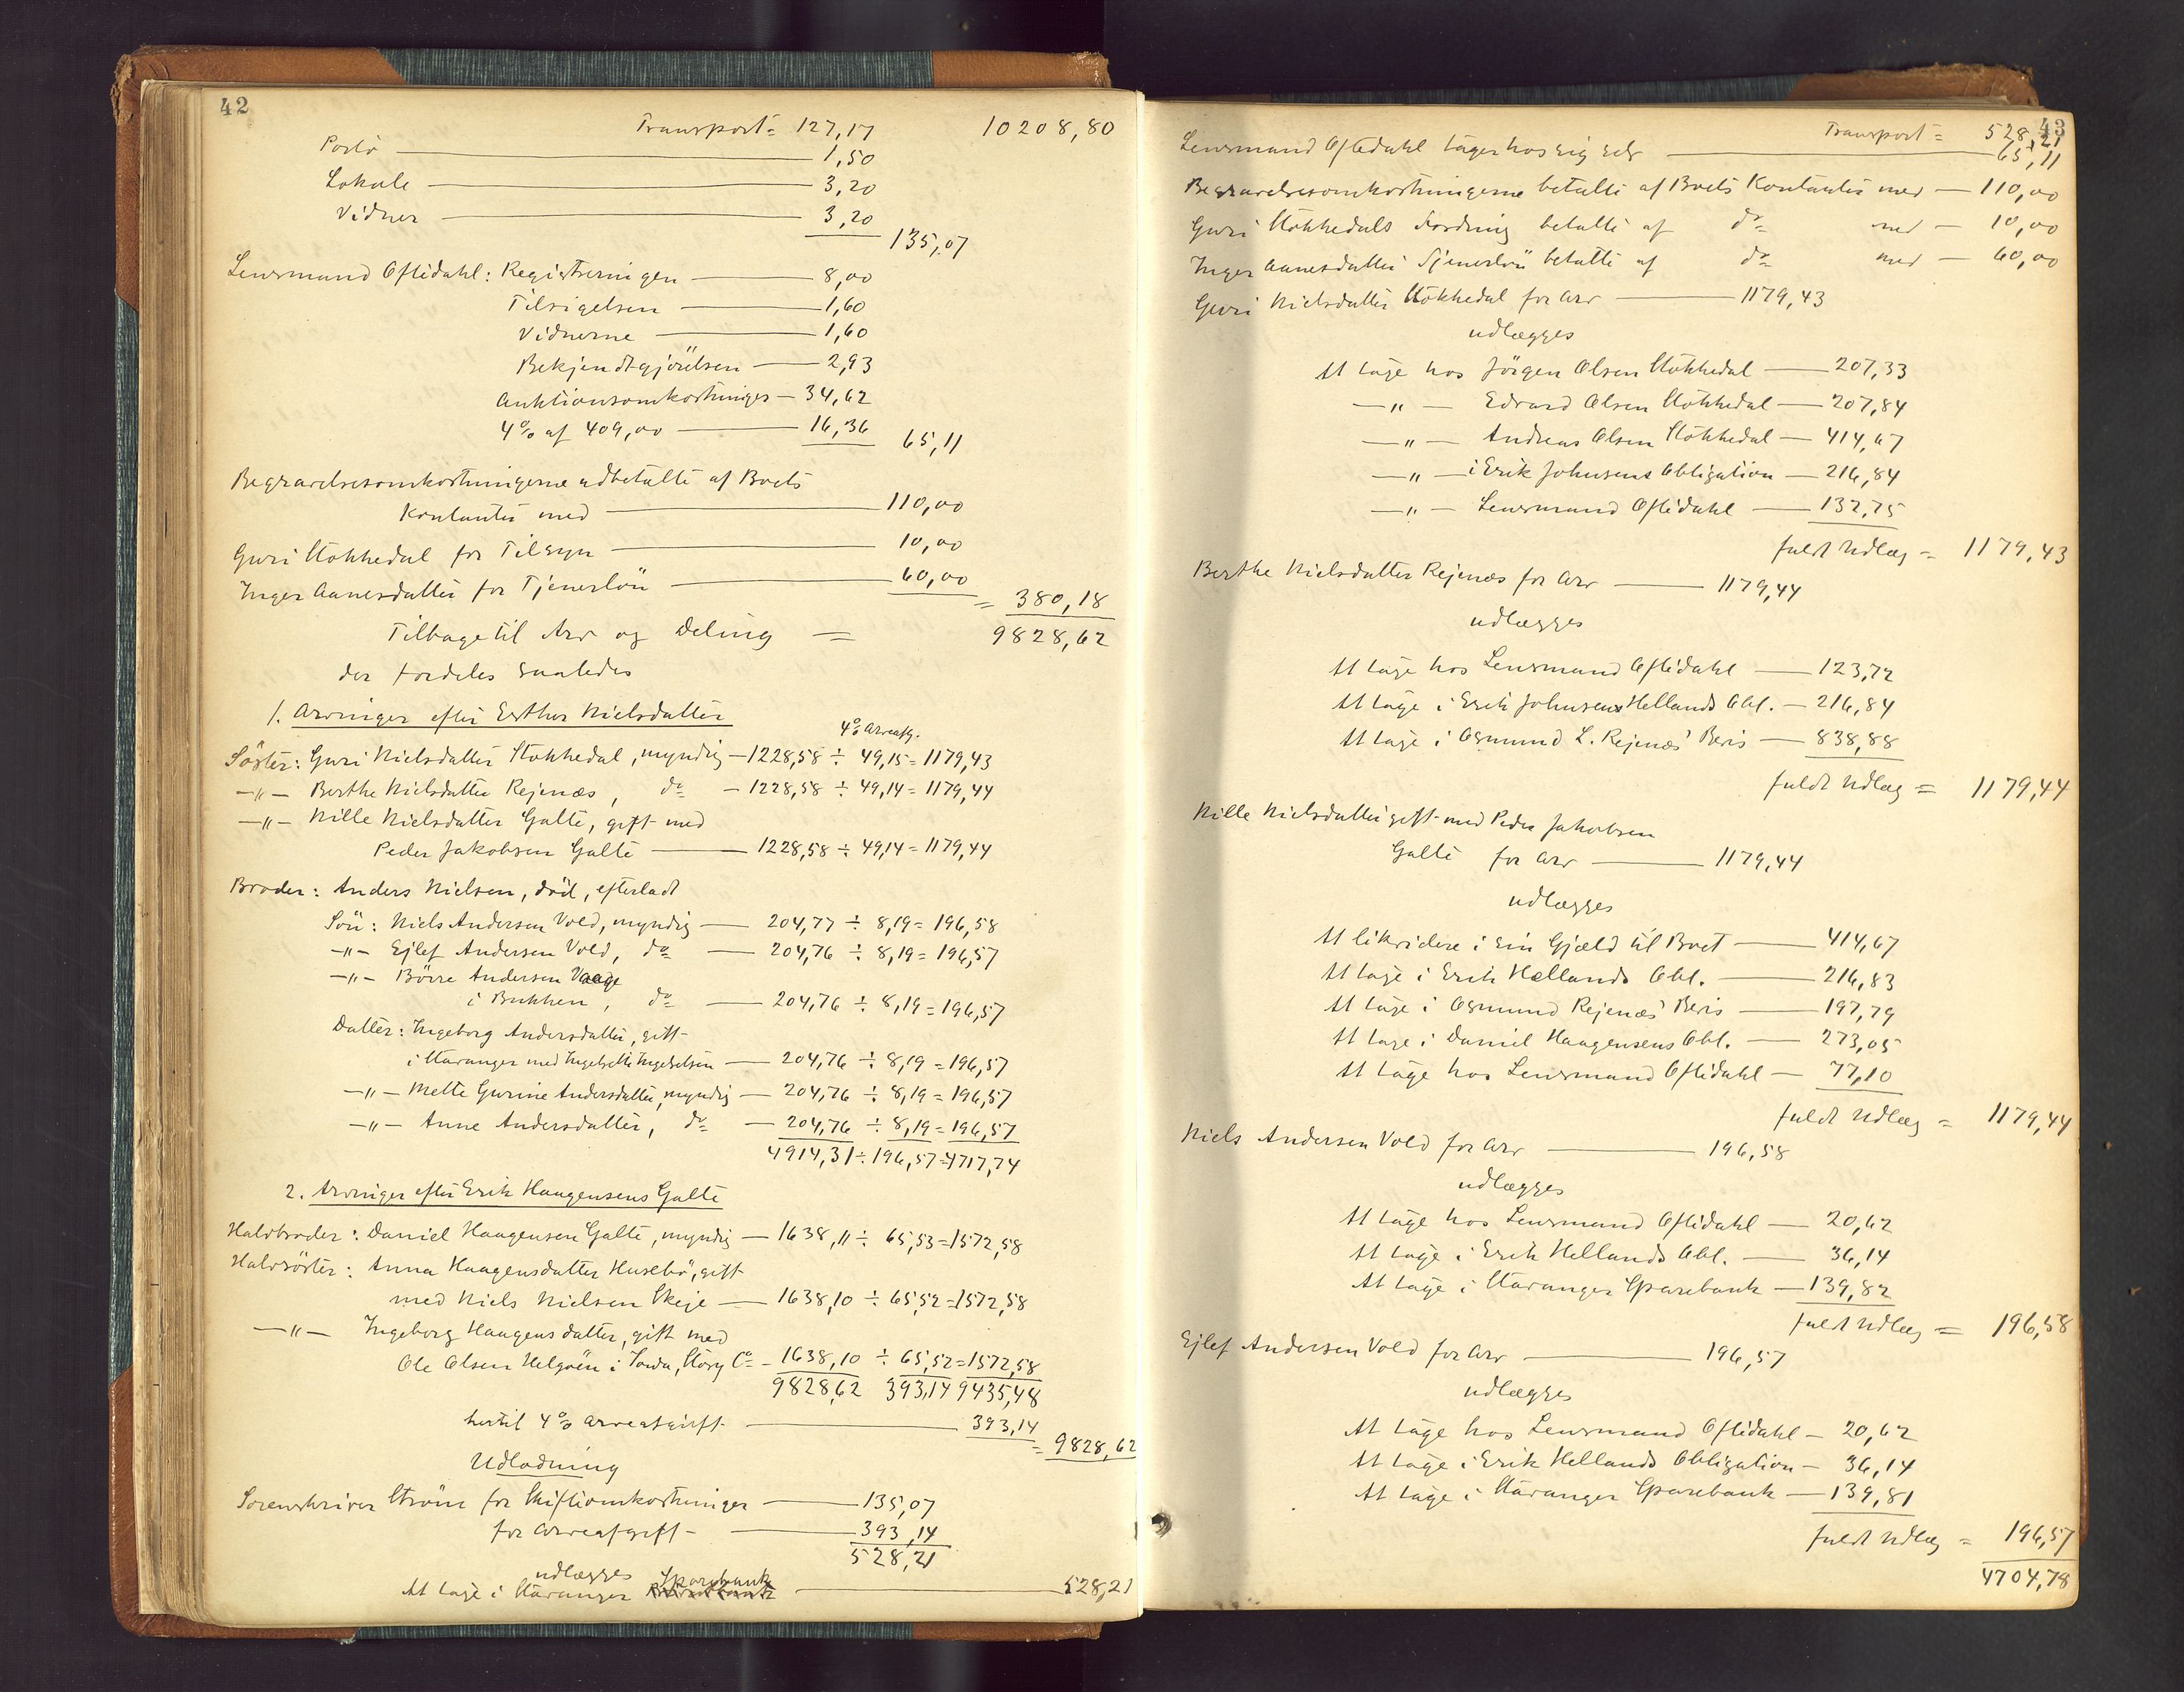 42
Transport = 127,17 10208,80
Porto — 1,50
Lokale — 3,20
Vidner — 3,20
135,07
Lensmand Oftedahl: Registreringen — 8,00
Tilsigelsen — 1,60
Vidnerne — 1,60
Bekjendtgjörelsen — 2,93
Auktionsomkostninger — 34,62
4% af 409,00 — 16,36 65,11
Begravelsesomkostningerne udbetalte af Boets
Kontanter med — 110,00
Guri Stokkedal for Tilsyn — 10,00
Inger Aanesdatter for Tjenerlön — 60,00
= 380,18
Tilbage til Arv og Deling = 9828,62
der fordeles saaledes
1. Arvinger efter Esther Nielsdatter
4% Arveafg.
Söster: Guri Nielsdatter Stokkedal, myndig — 1228,58 ÷ 49,15 = 1179,43
—"— Berthe Nielsdatter Rejenæs, do — 1228,58 ÷ 49,14 = 1179,44
—"— Nille Nielsdatter Galte, gift med
Peder Jakobsen Galte — 1228,58 ÷ 49,14 = 1179,44
Broder: Anders Nielsen, död, efterladt
Sön: Niels Andersen Vold, myndig — 204,77 ÷ 8,19 = 196,58
—"— Ejlef Andersen Vold, do — 204,76 ÷ 8,19 = 196,57
—"— Börre Andersen Vaage
i Bukken, do — 204,76 ÷ 8,19 = 196,57
Datter: Ingeborg Andersdatter, gift
i Stavanger med Ingebret Ingebretsen — 204,76 ÷ 8,19 = 196,57
—"— Mette Gurine Andersdatter, myndig — 204,76 ÷ 8,19 = 196,57
—"— Anne Andersdatter, do — 204,76 ÷ 8,19 = 196,57
4914,31 ÷ 196,57 = 4717,74
2. Arvinger efter Erik Haagensens Galte
Halvbroder: Daniel Haagensen Galte, myndig — 1638,11 ÷ 65,53 = 1572,58
Halvsöster: Anna Haagensdatter Husebö, gift
med Niels Nielsen Skeje — 1638,10 ÷ 65,52 = 1572,58
—"— Ingeborg Haagensdatter, gift med
Ole Olsen Helgöen i Iowa, Story Co — 1638,10 ÷ 65,52 = 1572,58
9828,62 393,14 9435,48
hertil 4% Arveafgift — 393,14
= 9828,62
Udlodning
Sorenskriver Ström for Skifteomkostninger — 135,07
for Arveafgift — 393,14
528,21
udlægges
At tage i Stavanger Sparebank — 528,21
43
Transport = 528,21
Lensmand Oftedahl tager hos sig selv — 65,11
Begravelsesomkostningerne betalte af Boets Kontanter med — 110,00
Guri Stokkedals Fordring betalte af do med — 10,00
Inger Aanesdatter Tjenerlön betalte af do med — 60,00
Guri Nielsdatter Stokkedal for Arv — 1179,43
udlægges
At tage hos Jörgen Olsen Stokkedal — 207,33
—"— Edvard Olsen Stokkedal — 207,84
—"— Andreas Olsen Stokkedal — 414,67
—"— i Erik Johnsens Obligation — 216,84
—"— Lensmand Oftedahl — 132,75
fuldt Udlæg = 1179,43
Berthe Nielsdatter Rejenæs for Arv — 1179,44
udlægges
At tage hos Lensmand Oftedahl — 123,72
At tage i Erik Johnsens Hellands Obl. — 216,84
At tage i Osmund L. Rejenæs' Bevis — 838,88
fuldt Udlæg = 1179,44
Nille Nielsdatter gift med Peder Jakobsen
Galte for Arv — 1179,44
udlægges
At likvidere i sin Gjæld til Boet — 414,67
At tage i Erik Hellands Obl. — 216,83
At tage i Osmund Rejenæs' Bevis — 197,79
At tage i Daniel Haagensens Obl. — 273,05
At tage hos Lensmand Oftedahl — 77,10
fuldt Udlæg = 1179,44
Niels Andersen Vold for Arv — 196,58
udlægges
At tage hos Lensmand Oftedahl — 20,62
At tage i Erik Hellands Obl. — 36,14
At tage i Stavanger Sparebank — 139,82
fuldt Udlæg = 196,58
Ejlef Andersen Vold for Arv — 196,57
udlægges
At tage hos Lensmand Oftedahl — 20,62
At tage i Erik Hellands Obligation — 36,14
At tage i Stavanger Sparebank — 139,81
fuldt Udlæg = 196,57
4704,78